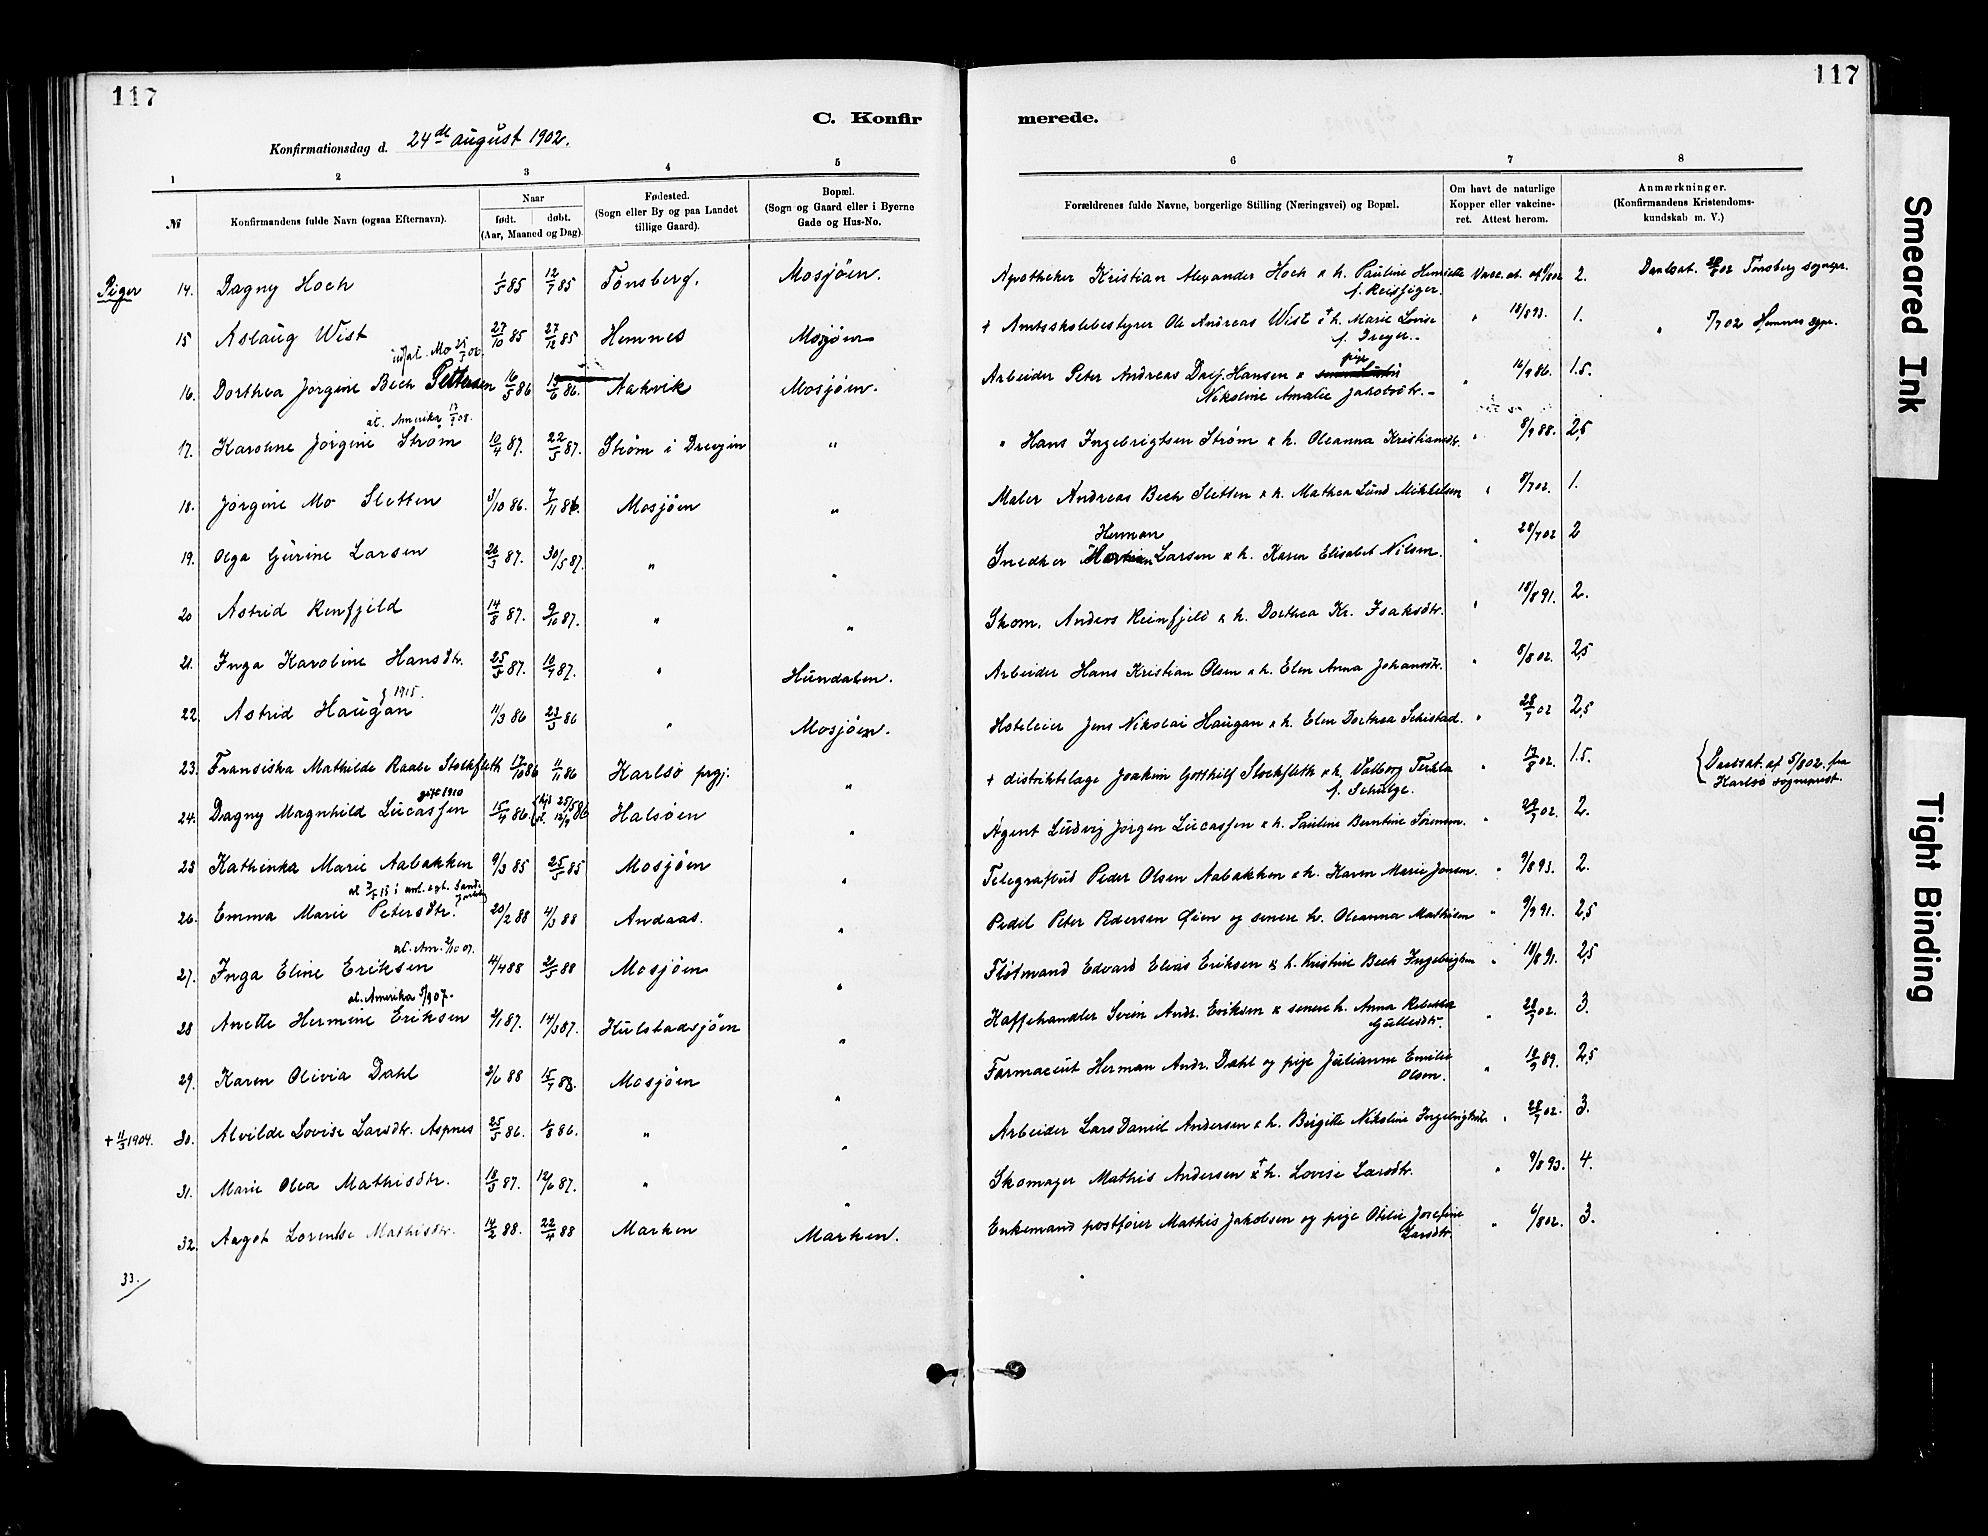 117
117
C. Konfirmerede.
Konfirmationsdag d. 24de august 1902.
1 2 3 4 5 6 7 8
№ Konfirmandens fulde Navn (ogsaa Efternavn). Naar født. døbt. (Aar, Maaned og Dag). Fødested. (Sogn eller By og paa Landet tillige Gaard). Bopæl. (Sogn og Gaard eller i Byerne Gade og Hus-No. Forældrenes fulde Navne, borgerlige Stilling (Næringsvei) og Bopæl. Om havt de naturlige Kopper eller vakcineret. Attest herom. Anmærkninger. (Konfirmandens Kristendomskundskab m. V.)
Piger 14. Dagny Hoch 1/5 85 12/7 85 Tönsberg. Mosjöen. Apotheker Kristian Alexander Hoch & h. Pauline Henriette f. Reissiger. Vacc. at. 2. Daabsat. Tønsberg sognepr.
15 Aslaug Wist 27/10 85 27/12 85 Hemnes Mosjöen + Amtsskolebestyrer Ole Andreas Wist & h. Marie Lovise f. Dreyer. " 18/8 93. 1. " 5/7 02 Hemnes sgpr.
16. Dorthea Jorgine Bech Pettersen 16/5 86 13/6 86. Aakvik Mosjöen. Arbeider Peter Andreas Hansen & pige Nikoline Amalie Jakobsdtr. " 16/9 86. 1.5.
at. Amerika
17. Karoline Jörgine Ström 10/4 87. 22/5 87. Ström i Drevjen " " Hans Ingebrigtsen Ström & h. Oleanna Kristiansdtr. " 8/9 88. 2,5
18. Jörgine Mo Sletten 3/10 86. 7/11 86. Mosjöen " Maler Andreas Bech Sletten & h. Mathea Lund Mikkelsen " 8/7 02. 1.
19. Olga Gurine Larsen 20/3 87. 30/5 87. " " Snedker Herman Larsen & h. Karen Elisabet Nilsen. " 28/7 02 2
20 Astrid Renfjeld 14/8 87. 9/10 87. " " Skom. Anders Reinfjeld & h. Dorthea Kr. Isaksdtr. " 18/8 91. 2.
21. Inga Karoline Hansdtr. 25/5 87. 10/7 87. " Hundalen. Arbeider Hans Kristian Olsen & h. Elen Anna Johansdtr. " 8/8 02. 2,5
22. Astrid Haugan 1915. 11/3 86 23/5 86 " Mosjöen. Hoteleier Jens Nikolai Haugan & h. Elen Dorthea Schistad. " 28/7 02 2,5
23. Fransiska Mathilde Raabe Stockfleth 17/10 86 11/11 86 Karlsö prgj. " + distriktslæge Joakim Gotthilf Stockfleth & h. Valborg Thekla f. Schulze. " 17/8 02. 1.5. Daabsat. af 5/8 02. fra Karlsö sogneprest.
24. Dagny Magnhild Lucassen gift 1910 15/4 86. 25/5 86 Halsöen " Agent Ludvig Jörgen Lucassen & h. Pauline Berntine Sörensen. " 29/7 02. 2.
25 Kathinka Marie Aabakken 9/3 85 25/5 85 Mosjöen " Telegrafbud Peder Olsen Aabakken & h. Karen Marie Jonsen. " 9/8 93. 2.
26. Emma Marie Petersdtr. 20/2 88 4/3 88 Andaas. " Pedel Peter Pedersen Øien og senere h. Oleanna Mathisen " 9/9 91. 2,5
27. Inga Eline Eriksen 4/4 88 21/5 88 Mosjöen " Flötmand Edvard Elias Eriksen & h. Kristine Bech Ingebrigtsen " 18/8 91. 2,5
at. Amerika 5/9 07.
28 Anette Hermine Eriksen 2/1 87. 14/3 87. Kulstadsjöen " Kaffehandler Svein Andr. Eriksen & senere h. Anna Rebekka Gullesdtr. " 28/7 02. 3.
29. Karen Olivia Dahl 2/6 88 15/7 88. Mosjöen " Farmaceut Herman Andr. Dahl og pige Julianne Emilie Olsen. " 18/9 89. 2,5
+ 11/3 1904. 30. Alvilde Lovise Larsdtr. Aspnes 25/5 86. 1/8 86. " " Arbeider Lars Daniel Andersen & h. Birgitte Nikoline Ingebrigtsdtr. " 28/7 02. 3.
31. Marie Olea Mathisdtr. 18/3 87. 12/6 87. " " Skomager Mathis Andersen & h. Lovise Larsdtr. " 9/8 93. 4.
32. Aagot Lorentse Mathisdtr. 14/2 88. 22/4 88 Marken Marken. Enkemand postförer Mathis Jakobsen og pige Otelie Josefine Larsdtr. " 6/8 02. 3.
33.
Smeared Ink
Tight Binding